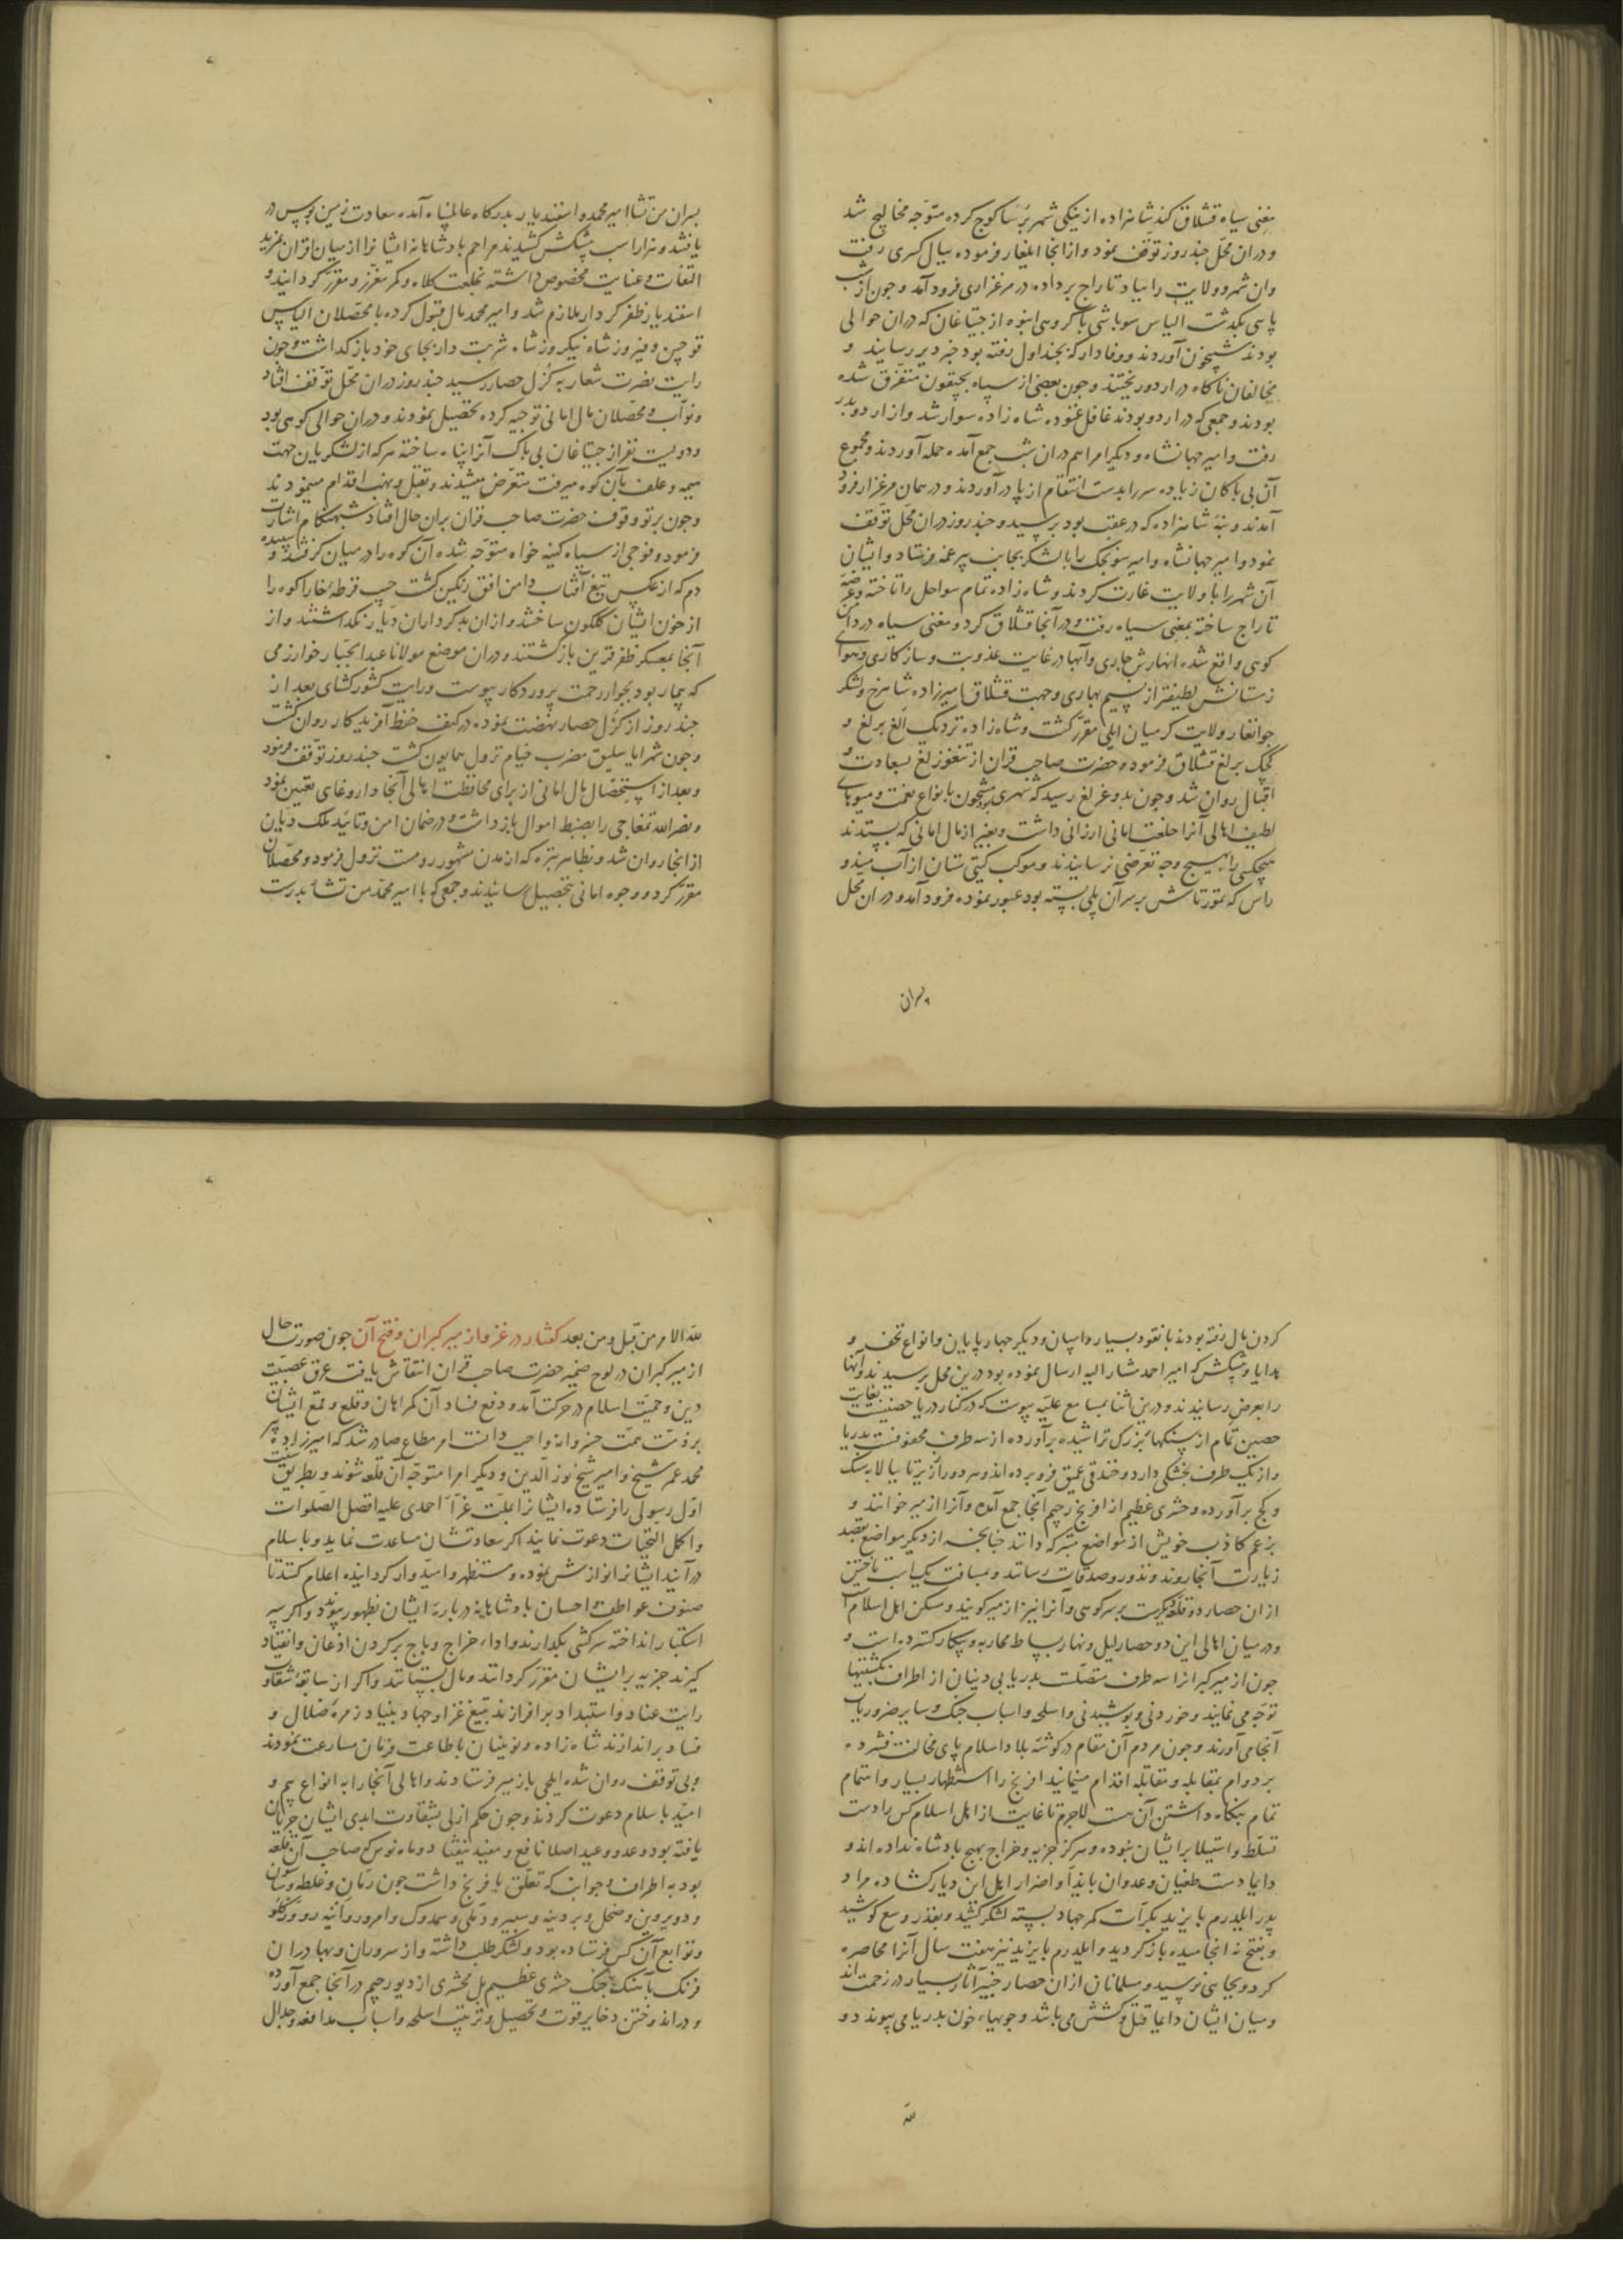 مغنی سیاه قشلاق کند شاهزاده از ینکی شهر برسا کوچ کرده متوجه مخالیج شد
و دران محل چند روز توقف نمود و از انجا ایلغار فرموده ببال کسری رفت
وان شهر و ولایت را بباد تاراج بر داده در مرغزاری فرود آمد و چون از شب
پاسی بگذشت الیاس سوباشی با گروهی انبوه از جیتاغان که دران حوالی
بودند شبیخون آوردند و وفادار که بچنداول رفته بود خبر دیر رسانید و
مخالفان ناگاه در اردو ریختند و چون بعضی از سپاه بچپقون متفرق شده
بودند و جمعی که در اردو بودند غافل غنوده شاه زاده سوار شد و از اردو بدر
رفت و امیر جهانشاه و دیگر امرا هم دران شب جمع آمده حمله آوردند و مجموع
آن بی باکان زیاده سر را بدست انتقام از پا در آوردند و در همان مرغزار فرود
آمدند و بنه شاهزاده که در عقب بود برسید و چند روز دران محل توقف
نمود و امیر جهانشاه و امیر سونجک را با لشکر بجانب برغمه فرستاد و ایشان
آن شهر را با ولایت غارت کردند و شاه زاده تمام سواحل را تاخته و عرضه
تاراج ساخته بمغنی سیاه رفت و در آنجا قشلاق کرد و مغنی سیاه در دامن
کوهی واقع شده انهارش جاری و آبها در غایت عذوبت و سازگاری و هوای
زمستانش لطیفتر از نسیم بهاری و جهت قشلاق امیرزاده شاهرخ و لشکر
جوانغار ولایت کرمیان ایلی مقرر گشت و شاه زاده نزدیک الغ برلغ و
کچک برلغ قشلاق فرمود و حضرت صاحب قران از تنغوزلغ بسعادت و
اقبال روان شد و چون بدوغرلغ رسید که شهری مشحون بانواع نعمت و میوهای
لطیف اهالی آنرا خلعت امانی ارزانی داشت و بغیر از مال امانی که بستدند
هیچکس را بهیچ وجه تعرضی نرسانیدند و موکب گیتی ستان از آب میندو
راس که تمورتاش بر سر آن پلی بسته بود عبور نموده فرود آمد و دران محل
پسران
پسران من تشا امیر محمد و اسفندیار بدرگاه عالمپناه آمده سعادت زمین بوس در
یافتند و هزار اسب پیشکش کشیدند مراحم پادشاهانه ایشانرا از میان اقران بمزید
التفات و عنایت مخصوص داشته بخلعت کلاه و کمر معزز و مقرر گردانید و
اسفندیار ظفر کردار ملازم شد و امیر محمد مال قبول کرده با محصلان الیاس
قوچین و فیروز شاه نیکروز شاه شربت دار بجای خود باز گذاشت و چون
رایت نصرت شعار به گزل حصار رسید چند روز دران محل توقف افتاد
و نواب و محصلان مال امانی توجیه کرده تحصیل نمودند و دران حوالی کوهی بود
و دویست نفر از جیتاغان بی باک آنرا پناه ساخته هر که از لشکریان جهت
هیمه و علف بآن کوه میرفت متعرض میشدند و بقتل و نهب اقدام مینمودند
و چون پرتو وقوف حضرت صاحب قران بران حال افتاد شبهنگام اشارت
فرمود و فوجی از سپاه کینه خواه متوجه شده آن کوه را در میان گرفتند و سپیده
دم که از عکس تیغ آفتاب دامن افق رنگین گشت جیب قرطه خارا کوه را
از خون ایشان گلگون ساختند و ازان بدکرداران دیار نگذاشتند و از
آنجا بمعسکر ظفر قرین بازگشتند و دران موضع مولانا عبدالجبار خوارزمی
که بیمار بود بجوار رحمت پروردگار پیوست و رایت کشور کشای بعد از
چند روز از گزل حصار نهضت نموده در کنف حفظ آفریدگار روان گشت
و چون شهر ایاسلیق مضرب خیام نزول همایون گشت چند روز توقف فرمود
و بعد از استحصال مال امانی از برای محافظت اهالی آنجا داروغای تعیین نمود
و نصرالله تمغاجی را بضبط اموال بازداشت و در ضمان امن و تائید ملک دیان
از انجا روان شد و بظاهر تیره که از مدن مشهور رومست نزول فرمود و محصلان
مقرر کرد و وجوه امانی بتحصیل رسانیدند و جمعی که با امیر محمد من تشا بدرست
کردن مال رفته بودند با نقود بسیار و اسپان و دیگر چهار پایان و انواع تحف و
هدایا و پیشکش که امیر احمد مشار الیه ارسال نموده بود درین محل برسیدند و آنها
را بعرض رسانیدند و درین اثنا بمسامع علیه پیوست که در کنار دریا حصنیست بغایت
حصین تمام از سنگهای بزرگ تراشیده برآورده از سه طرف محفوفست بدریا
و از یک طرف بخشکی دارد و خندقی عمیق فرو برده اند و هر دو را از زیر تا ببالا بسنگ
و گچ برآورده و حشری عظیم از افرنج رجیم آنجا جمع آمده و آنرا ازمیر خوانند و
بزعم کاذب خویش از مواضع متبرکه دانند چنانچه از دیگر مواضع بقصد
زیارت آنجا روند و نذور و صدقات رسانند و بمسافت یک اسب تاختن
ازان حصار دو قلعه دیگرست بر سر کوهی و آنرا نیز ازمیر گویند و مسکن اهل اسلام است
و درمیان اهالی این دو حصار لیل و نهار بساط محاربه و پیکار گسترده است و
چون ازمیر گبرانرا سه طرف متصلست بدریا بی دینان از اطراف بکشتیها
توجه می نمایند و خوردنی و پوشیدنی و اسلحه و اسباب جنگ و سایر ضروریات
آنجا می آورند و چون مردم آن مقام در گوشه بلاد اسلام پای مخالفت فشرده
بر دوام بمقابله و مقاتله اقدام مینمایند افرنج را استظهار بسیار و اهتمام
تمام بنگاه داشتن آن هست لاجرم تا غایت از اهل اسلام کس را دست
تسلط و استیلا بر ایشان نبوده و هرگز جزیه و خراج بهیچ پادشاه نداده اند و
دایما دست طغیان و عدوان بایذا و اضرار اهل این دیار گشاده مراد
پدر ایلدرم بایزید بکرات کمر جهاد بسته لشکر کشید و بقدر وسع کوشید
و بفتح نه انجامیده بازگردید و ایلدرم بایزید نیز هفت سال آنرا محاصره
کرد و بجایی نرسید و مسلمانان ازان حصار خیبر آثار بسیار در زحمت اند
و میان ایشان دایما قتل و کشش می باشد و جویهاء خون بدریا می پیوندد و
لله
لله الامر من قبل و من بعد گفتار در غزو ازمیر گبران و فتح آن چون صورت حال
ازمیر گبران در لوح ضمیر حضرت صاحب قران انتقاش یافت عرق عصبیت
دین و حمیت اسلام در حرکت آمد و دفع فساد آن گمراهان و قلع و قمع ایشان
بر ذمت همت خسروانه واجب دانست امر مطاع صادر شد که امیرزاده پیر
محمد عمر شیخ و امیر شیخ نورالدین و دیگر امرا متوجه آن قلعه شوند و بطریق سنت
اول رسولی را فرستاده ایشانرا بملت غراء احمدی علیه افضل الصلوات
و اکمل التحیات دعوت نمایند اگر سعادتشان مساعدت نماید و باسلام
در آیند ایشانرا نوازش نموده و مستظهر و امیدوار گردانیده اعلام کنند تا
صنوف عواطف و احسان پادشاهانه درباره ایشان بظهور پیوندد و اگر سپر
استکبار انداخته سرکشی بگذارند و اداء خراج و باج بر گردن اذعان و انقیاد
گیرند جزیه بر ایشان مقرر گردانند و مال بستانند و اگر از سابقه شقاوت
رایت عناد و استبداد برافرازند بتیغ غزا و جهاد بنیاد زمره ضلال و
فساد براندازند شاه زاده و نوینان باطاعت فرمان مسارعت نمودند
و بی توقف روان شده ایلچی بازمیر فرستادند و اهالی آنجا را به انواع بیم و
امید باسلام دعوت کردند و چون حکم ازلی بشقاوت ابدی ایشان جریان
یافته بود وعد و وعید اصلا نافع و مفید نیفتاد و ماه نوس که صاحب آن قلعه
بود به اطراف و جوانب که تعلق بافرنج داشت چون
و توابع آن کس فرستاده بود و لشکر طلب داشته و از سروران و بهادران
فرنگ بآهنگ جنگ حشری عظیم بل محشری از دیو رجیم در آنجا جمع آورده
و در اندوختن ذخایر قوت و تحصیل و ترتیب اسلحه و اسباب مدافعه و جدال